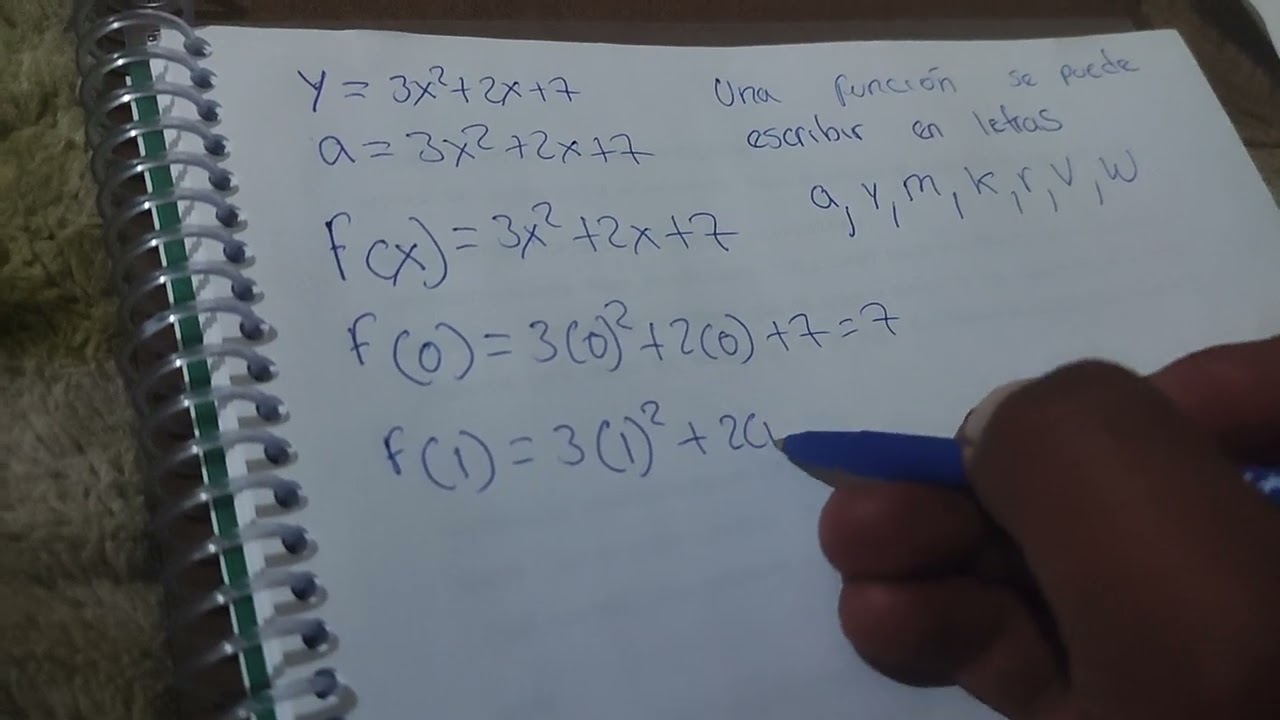 y = 3x²+2x+7
a = 3x²+2x+7
Una función se puede
escribir en letras
a, y, m, k, r, v, w
f(x) = 3x²+2x+7
f(0) = 3(0)²+2(0)+7=7
f(1) = 3(1)²+2(1